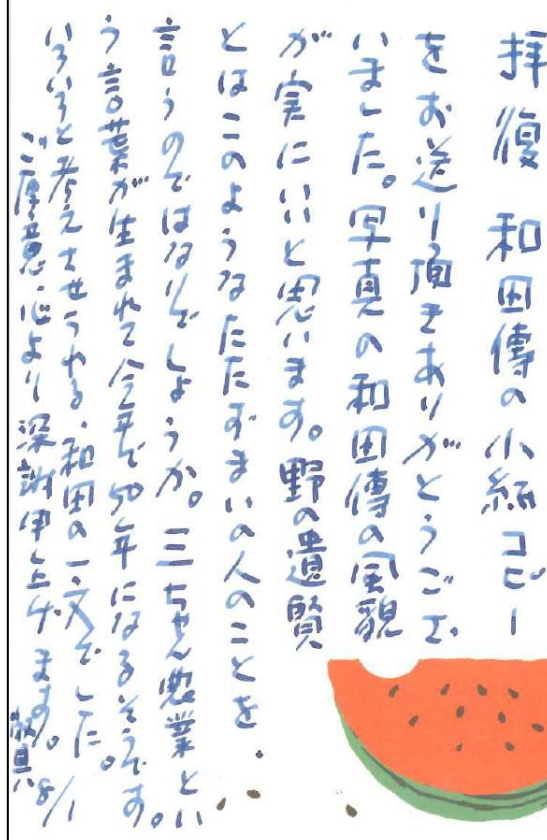 拝復 和田傳の小紙コピー
をお送り頂きありがとうござ
いました。写真の和田傳の風貌
が実にいいと思います。野の遺賢
とはこのようなたたずまいの人のことを
言うのではないでしょうか。三ちゃん農業とい
う言葉が生まれて今年で50年になるそうです。
いろいろと考えさせられる、和田の一文でした。
ご厚意心より深謝申し上げます。敬具 8/1